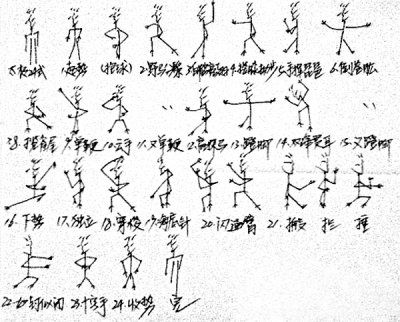 太极式 起势 (抱球) 2.野马分鬃 3.白鹤亮翅 4.搂膝拗步 5.手挥琵琶 6.倒卷肱
8.揽雀尾 9.单鞭 10.云手 11.又单鞭 12.高探马 13.蹬脚 14.双峰贯耳 15.又蹬脚
16.下势 17.独立 18.穿梭 19.海底针 20.闪通臂 21.搬 拦 捶
22.如封似闭 23.十字手 24.收势 完